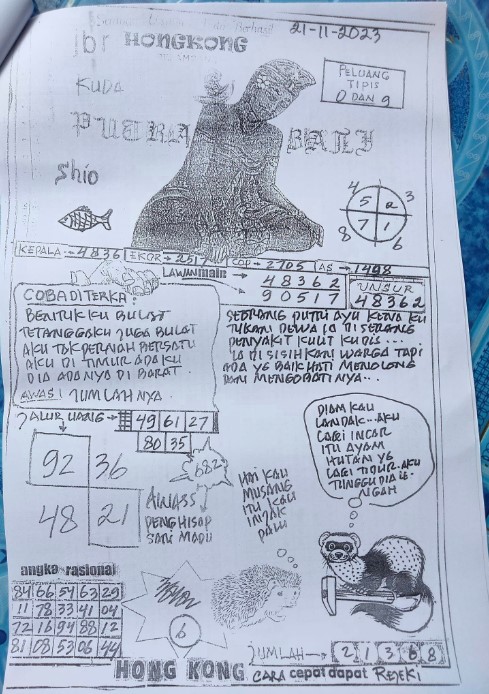 21-11-2023
jbr HONGKONG
PELUANG
TIPIS
0 DAN 9
KUDA
PUTRA BALI
Shio
4 5 2 3
8 7 1 6
KEPALA→4836 EKOR→2517 COP→2705 AS→1498
LAWANMAIN→ 48362
90517
UNSUR
48362
COBA DITERKA:
BENTUKKU BULAT
TETANGGAKU JUGA BULAT
AKU TAK PERNAH BERSATU
AKU DI TIMUR ADA KU
DIA ADANYA DI BARAT.
AWAS! JUMLAHNYA.
SEORANG PUTRI AYU KENA KU
TUKAN DEWA IA DI SERANG
PENYAKIT KULIT KUDIS...
IA DI SISIHKAN WARGA TAPI
ADA YG BAIK HATI MENOLONG
DAN MENGOBATINYA...
JALUR UANG→ 49 61 27
80 35
92 36
48 21
682
AWASS
PENGHISAP
SARI MADU
HAI KAU
MUSANG
ITU KAU
INJAK
PALU
DIAM KAU
LANDAK...AKU
LAGI INCAR
ITU AYAM
HUTAN YG
LAGI TIDUR.AKU
TUNGGU DIA LE
NGAH
angka rasional
84 66 54 63 29
11 78 33 41 04
72 16 94 88 12
81 08 53 06 44
6
JUMLAH→ 2 1 3 6 8
HONG KONG CARA cepat dapat REJEKI